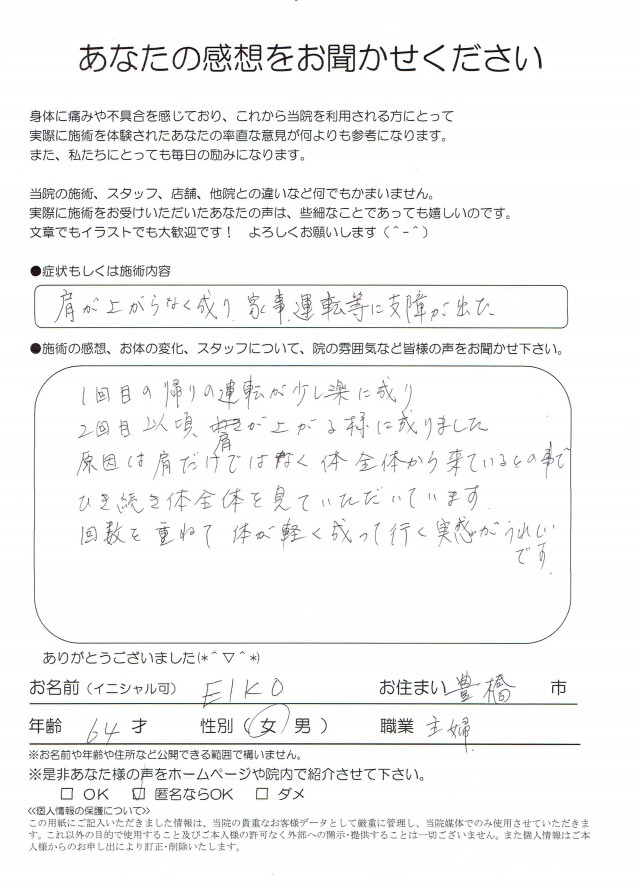 あなたの感想をお聞かせください
身体に痛みや不具合を感じており、これから当院を利用される方にとって
実際に施術を体験されたあなたの率直な意見が何よりも参考になります。
また、私たちにとっても毎日の励みになります。
当院の施術、スタッフ、店舗、他院との違いなど何でもかまいません。
実際に施術をお受けいただいたあなたの声は、些細なことであっても嬉しいのです。
文章でもイラストでも大歓迎です！ よろしくお願いします（＾−＾）
●症状もしくは施術内容
肩が上がらなく成り、家事、運転等に支障が出た
●施術の感想、お体の変化、スタッフについて、院の雰囲気など皆様の声をお聞かせ下さい。
1回目の帰りの運転が少し楽に成り
2回目以頃、肩が上がる様に成りました
原因は肩だけではなく体全体から来ているとの事で
ひき続き体全体を見ていただいています
回数を重ねて体が軽く成って行く実感がうれしい
です。
ありがとうございました(*＾▽＾*)
お名前（イニシャル可） EIKO お住まい 豊橋 市
年齢 64 才 性別（ 女 男 ） 職業 主婦
※お名前や年齢や住所など公開できる範囲で構いません。
※是非あなた様の声をホームページや院内で紹介させて下さい。
□ OK □ 匿名ならOK □ ダメ
≪個人情報の保護について≫
この用紙にご記入いただきました情報は、当院の貴重なお客様データとして厳重に管理し、当院媒体でのみ使用させていただきま
す。これ以外の目的で使用すること及びご本人様の許可なく外部への開示・提供することは一切ございません。また個人情報はご本
人様からのお申し出により訂正・削除いたします。